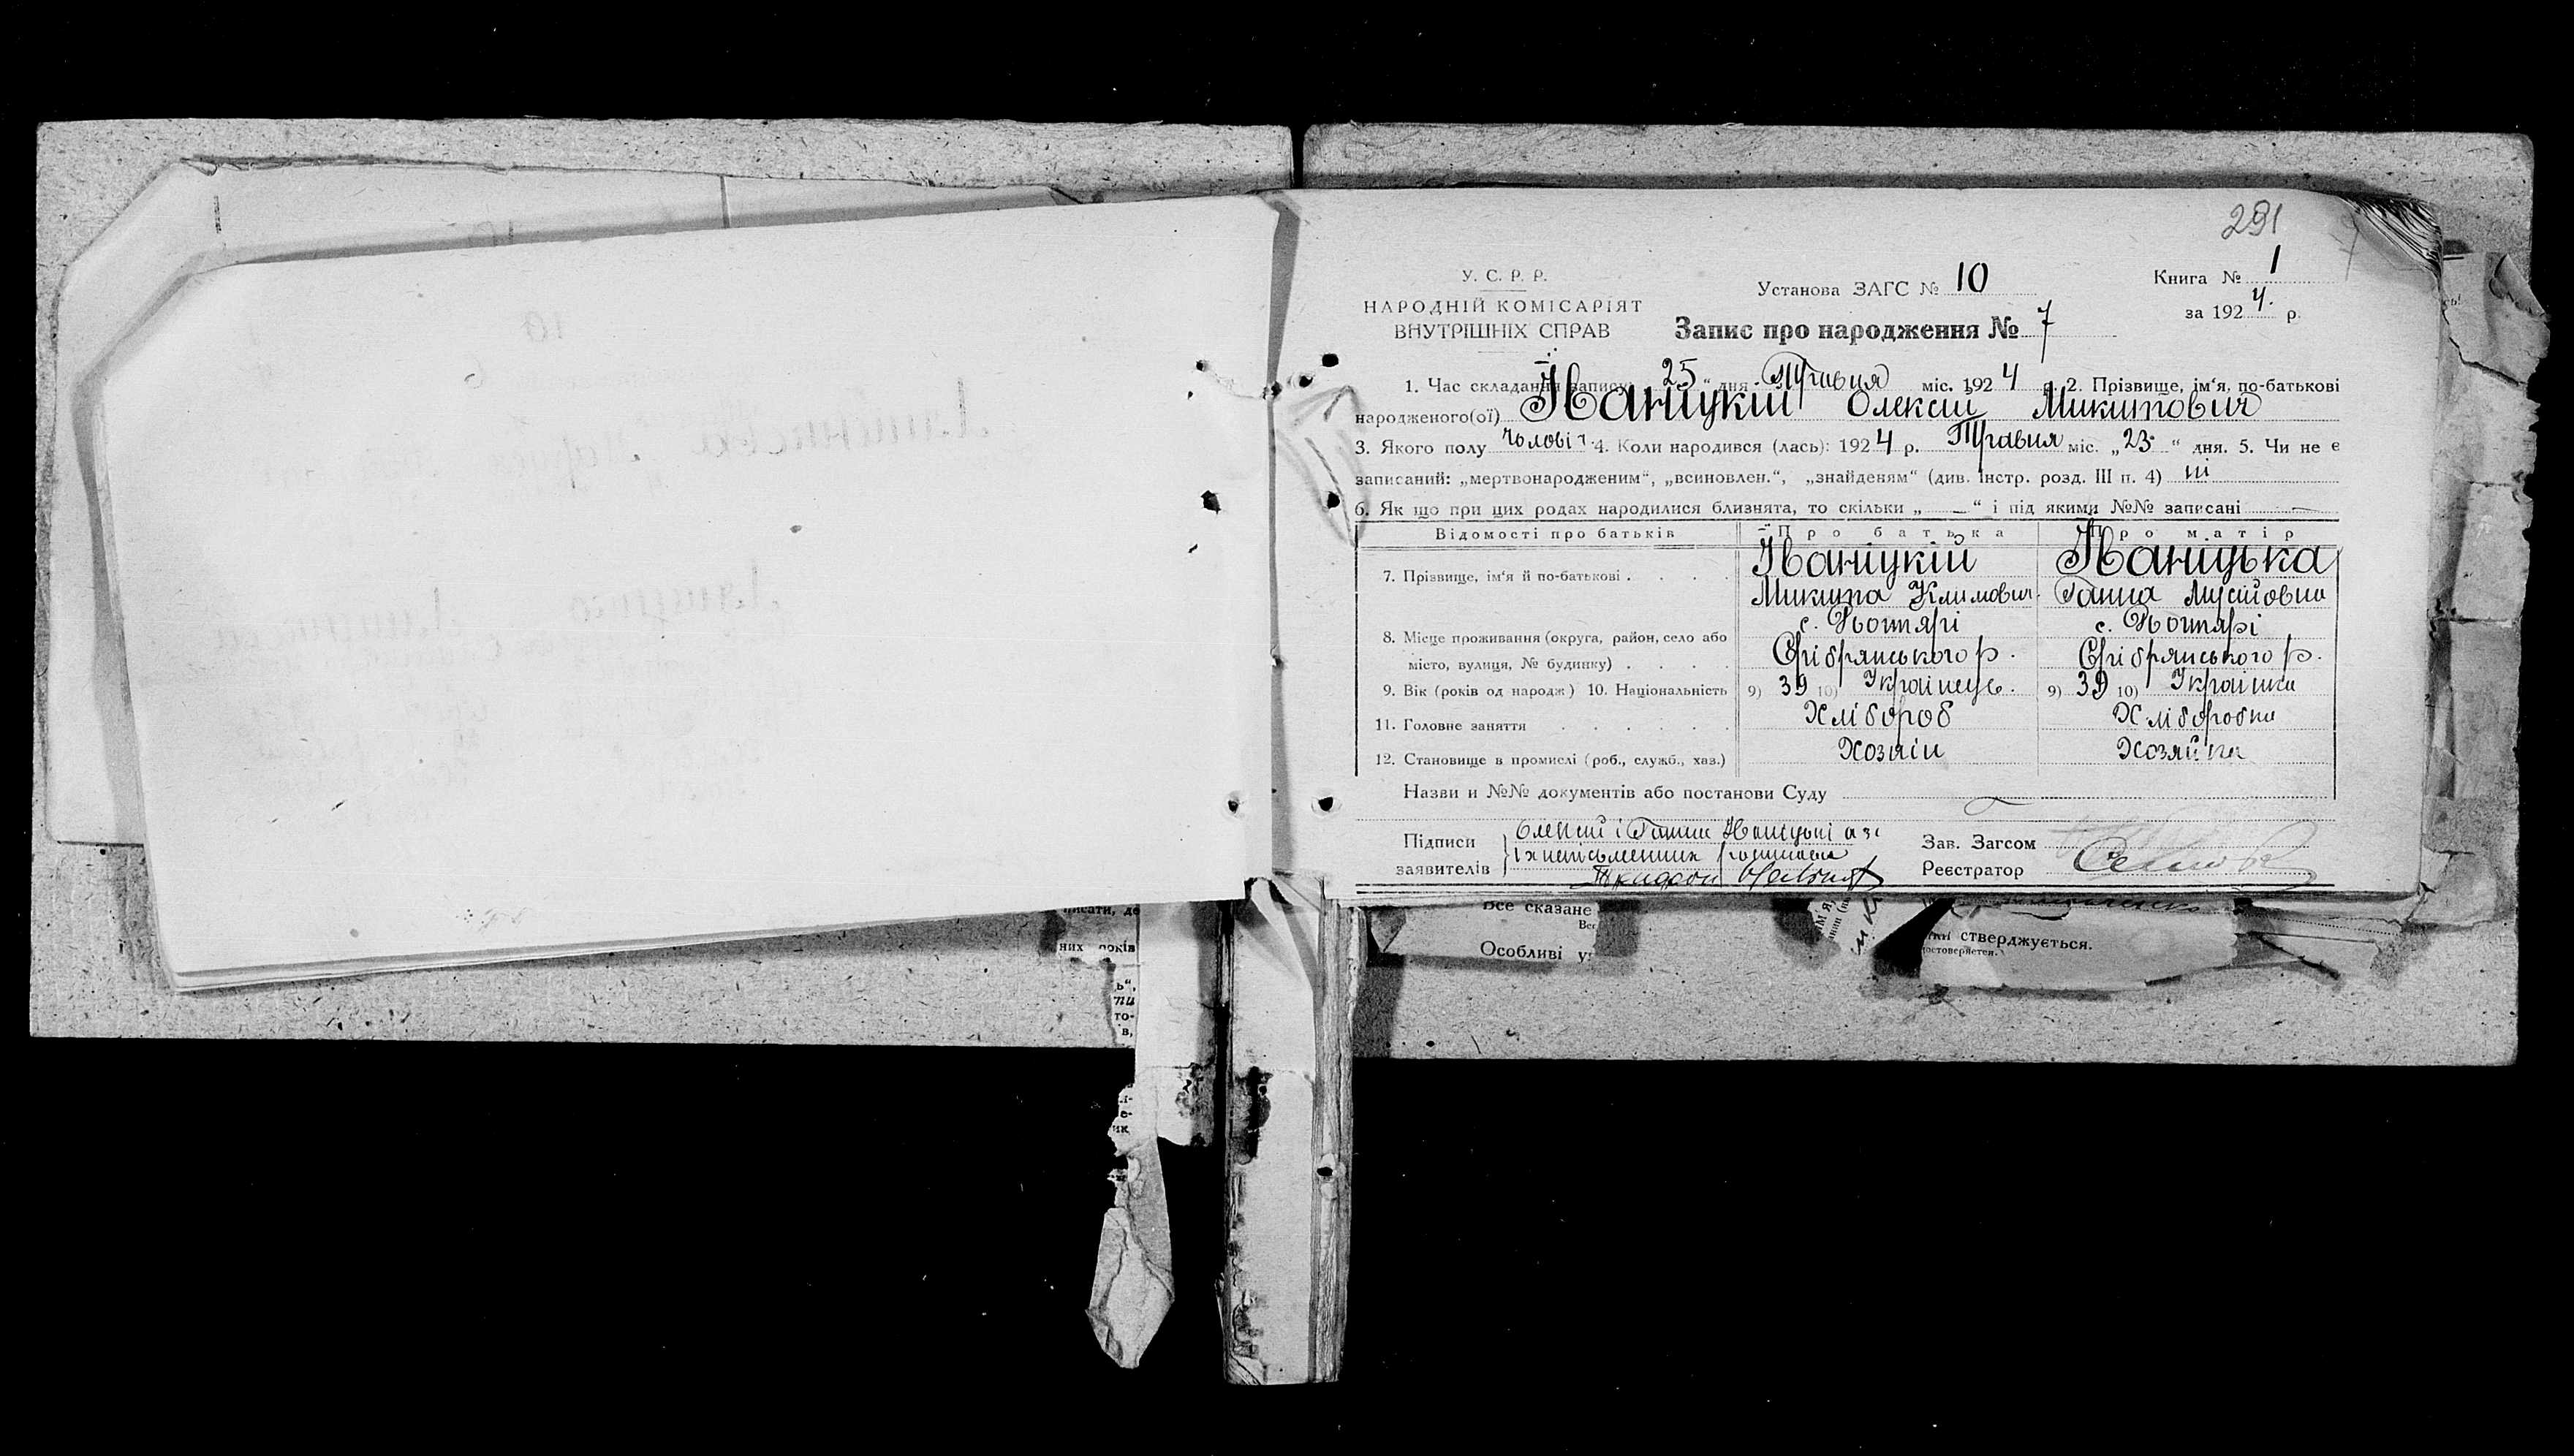 291
У. С. Р. Р.
НАРОДНІЙ КОМІСАРІЯТ
ВНУТРІШНІХ СПРАВ
Установа ЗАГС № 10
Книга № 1
за 1924 р.
Запис про народження № 7
1. Час складання запису: 25 “ дня Травня міс. 1924 р. 2. Прізвище, ім‘я, по-батькові
народженого(ої) Їваніцкій Олексій Микитович
3. Якого полу чоловіч. 4. Коли народився (лась): 1924 р. Травня міс. „23“ дня. 5. Чи не є
записаний: „мертвонародженим“, „всиновлен.“, „знайденям“ (див. Інстр. розд. III п. 4) ні
6. Як що при цих родах народилися близнята, то скільки „ — “ і під якими №№ записані —
Відомості про батьків Про батька Про матір
7. Прізвище, ім‘я й по-батькові . Їваніцкій Їваніцька
Микита Климович Ганна Мусіївна
8. Місце проживання (округа, район, село або с. с.
місто, вулиця, № будинку) . Срібрянського р. Срібрянського р.
9. Вік (років од народж) 10. Національність 9) 39 10) Українець. 9) 39 10) Українка
11. Головне заняття Хлібороб Хліборобка
12. Становище в промислі (роб., служб., хаз.) Хозяін Хозяйка
Назви и №№ документів або постанови Суду
Підписи
заявителів
Олексій і Ганна Іваніцькі а за
їх неписьменних росписався
Зав. Загсом
Реєстратор
писати, де
них років
Все сказане
Особливі у
ки стверджується.
достоверяется.